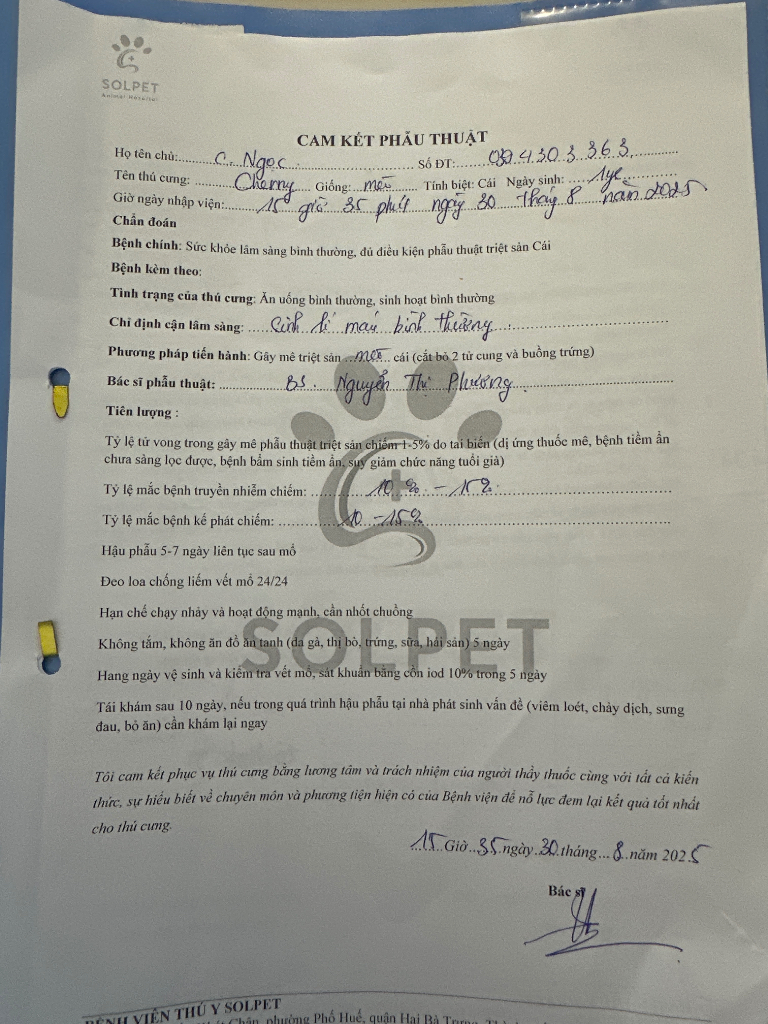 SOLPET
Animal Hospital
CAM KẾT PHẪU THUẬT
Họ tên chủ: C. Ngọc Số ĐT: 039.4303 363
Tên thú cưng: Cherry Giống: mèo Tính biệt: Cái Ngày sinh: 1ye
Giờ ngày nhập viện: 15 giờ 35 phút ngày 30 tháng 8 năm 2025
Chẩn đoán
Bệnh chính: Sức khỏe lâm sàng bình thường, đủ điều kiện phẫu thuật triệt sản Cái
Bệnh kèm theo:
Tình trạng của thú cưng: Ăn uống bình thường, sinh hoạt bình thường
Chỉ định cận lâm sàng: Sinh lí máu bình thường
Phương pháp tiến hành: Gây mê triệt sản mèo cái (cắt bỏ 2 tử cung và buồng trứng)
Bác sĩ phẫu thuật: BS. Nguyễn Thị Phương
Tiên lượng :
Tỷ lệ tử vong trong gây mê phẫu thuật triệt sản chiếm 1-5% do tai biến (dị ứng thuốc mê, bệnh tiềm ẩn
chưa sàng lọc được, bệnh bẩm sinh tiềm ẩn, suy giảm chức năng tuổi già)
Tỷ lệ mắc bệnh truyền nhiễm chiếm: 10% - 15%
Tỷ lệ mắc bệnh kế phát chiếm: 10 - 15%
Hậu phẫu 5-7 ngày liên tục sau mổ
Đeo loa chống liếm vết mổ 24/24
Hạn chế chạy nhảy và hoạt động mạnh, cần nhốt chuồng
Không tắm, không ăn đồ ăn tanh (da gà, thị bò, trứng, sữa, hải sản) 5 ngày
Hang ngày vệ sinh và kiểm tra vết mổ, sát khuẩn bằng cồn iod 10% trong 5 ngày
Tái khám sau 10 ngày, nếu trong quá trình hậu phẫu tại nhà phát sinh vấn đề (viêm loét, chảy dịch, sưng
đau, bỏ ăn) cần khám lại ngay
SOLPET
Tôi cam kết phục vụ thú cưng bằng lương tâm và trách nhiệm của người thầy thuốc cùng với tất cả kiến
thức, sự hiểu biết về chuyên môn và phương tiện hiện có của Bệnh viện để nỗ lực đem lại kết quả tốt nhất
cho thú cưng.
15 Giờ 35 ngày 30 tháng 8 năm 2025
Bác sĩ
BỆNH VIỆN THÚ Y SOLPET
Chân, phường Phố Huế, quận Hai Bà Trưng